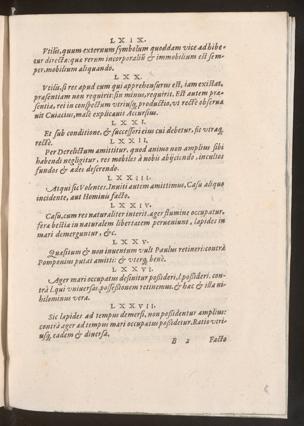 LXIX.
Vtilis, quum externum symbolum quoddam vice adhibe-
tur directa: qua rerum incorporaliũ & immobilium est sem-
per, mobilium aliquando.
LXX.
Vtilis, si res apud eum qui apprehensurus est, iam exsistat,
præsentiam non requirit: sin minus, requirit. Est autem præ-
sentia, rei in conspectum vtriusq; productio, vt rectè obserua
uit Cuiacius, malè explicauit Accursius.
LXXI.
Et sub conditione, & successori eius cui debetur, sic vtraq;
rectè.
LXXII.
Per Derelictum amittitur, quod animo non amplius sibi
habendi negligitur. res mobiles à nobis abijciendo, incultos
fundos & ædes deserendo.
LXXIII.
Atqui sic Volentes. Inuiti autem amittimus, Casu aliquo
incidente, aut Hominis facto.
LXXIV.
Casu, cum res naturaliter interit. ager flumine occupatur,
fera bestia in naturalem libertatem peruenient, lapides in
mari demerguntur, &c.
LXXV.
Quæsitum & non inuentum vult Paulus retineri: contrà
Pomponius putat amitti: & vterq; benè.
LXXVI.
Ager mari occupatus desinitur possideri, l. possideri. con-
trà l. qui vniuersas. possessionem retinemus. & hæc & illa ni-
hilominus vera.
LXXVII.
Sic lapides ad tempus demersi, non possidentur amplius:
contrà ager ad tempus mari occupatus possidetur. Ratio vtri-
usq; eadem & diuersa.
B 2 Facto